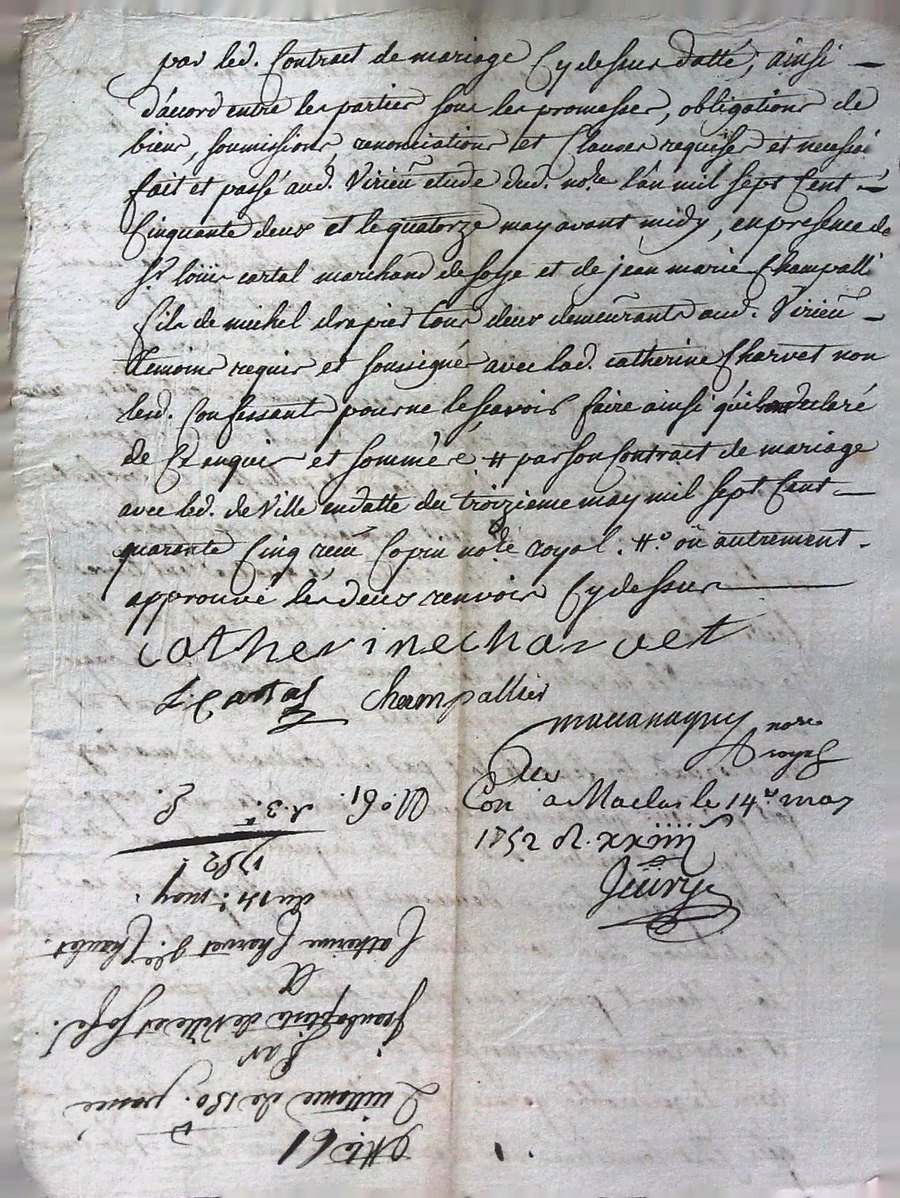 par led. Contrat de mariage Cy dessus datté, ainsi
d'acord entre les parties sous les promesses, obligations de
biens, soumissions, renonciations et Clauses requises et necessés
fait et passé aud. Virieu etude dud. nore l'an mil sept Cent
Cinquante deux et le quatorze may avant midy, en presence de
Sr. loüis cartal marchand de soye et de jean marie Champalli
fils de michel drapier tous deux demeurants aud. Virieu
temoins requis et soussignés avec lad. catherine Charvet non
led. Confessant pour ne le sçavoir faire ainsi qu'il a declaré
de Ce enquis et sommé # par son Contrat de mariage
avec led. de Ville en datte du troizieme may mil sept Cent
quarante Cinq reçeu nore royal. #o ou autrement
approuvé les deux renvois Cy dessus
catherine charvet
L. Cartal Champallier
nore
royal
Con a Maclas le 14e may
1752 R. xxiiii s
No 61. d. 3.
1752
du 14e may
Catherine Charvet
A
jean baptiste de Ville
Par
Quittance de 150.
61